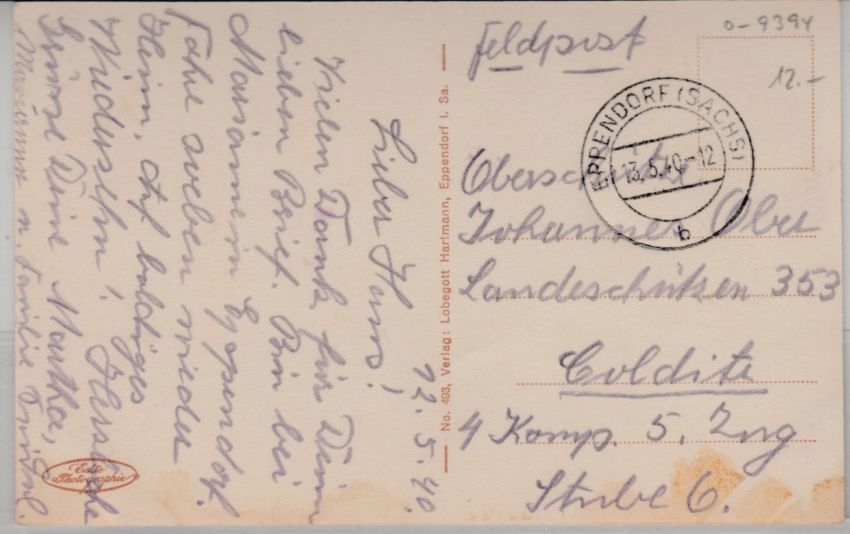 12. 5. 40.
Lieber Hans!
Vielen Dank für Dein
lieben Brief. Bin bei
Mariannen Eppendorf.
Fahre soeben wieder
Heim, Auf baldiges
Wiedersehn! Herzliche
Grüsse Deine Martha,
Marianne u. Familie
Echte
Photographie
No. 493, Verlag: Lobegott Hartmann, Eppendorf i. Sa.
0-9394
12.-
Feldpost
EPPENDORF (SACHS)
13.5.40-12
b
Oberschütze
Johannes
Landesschützen 353
Colditz
4 Komp. 5. Zug
Stube 6.